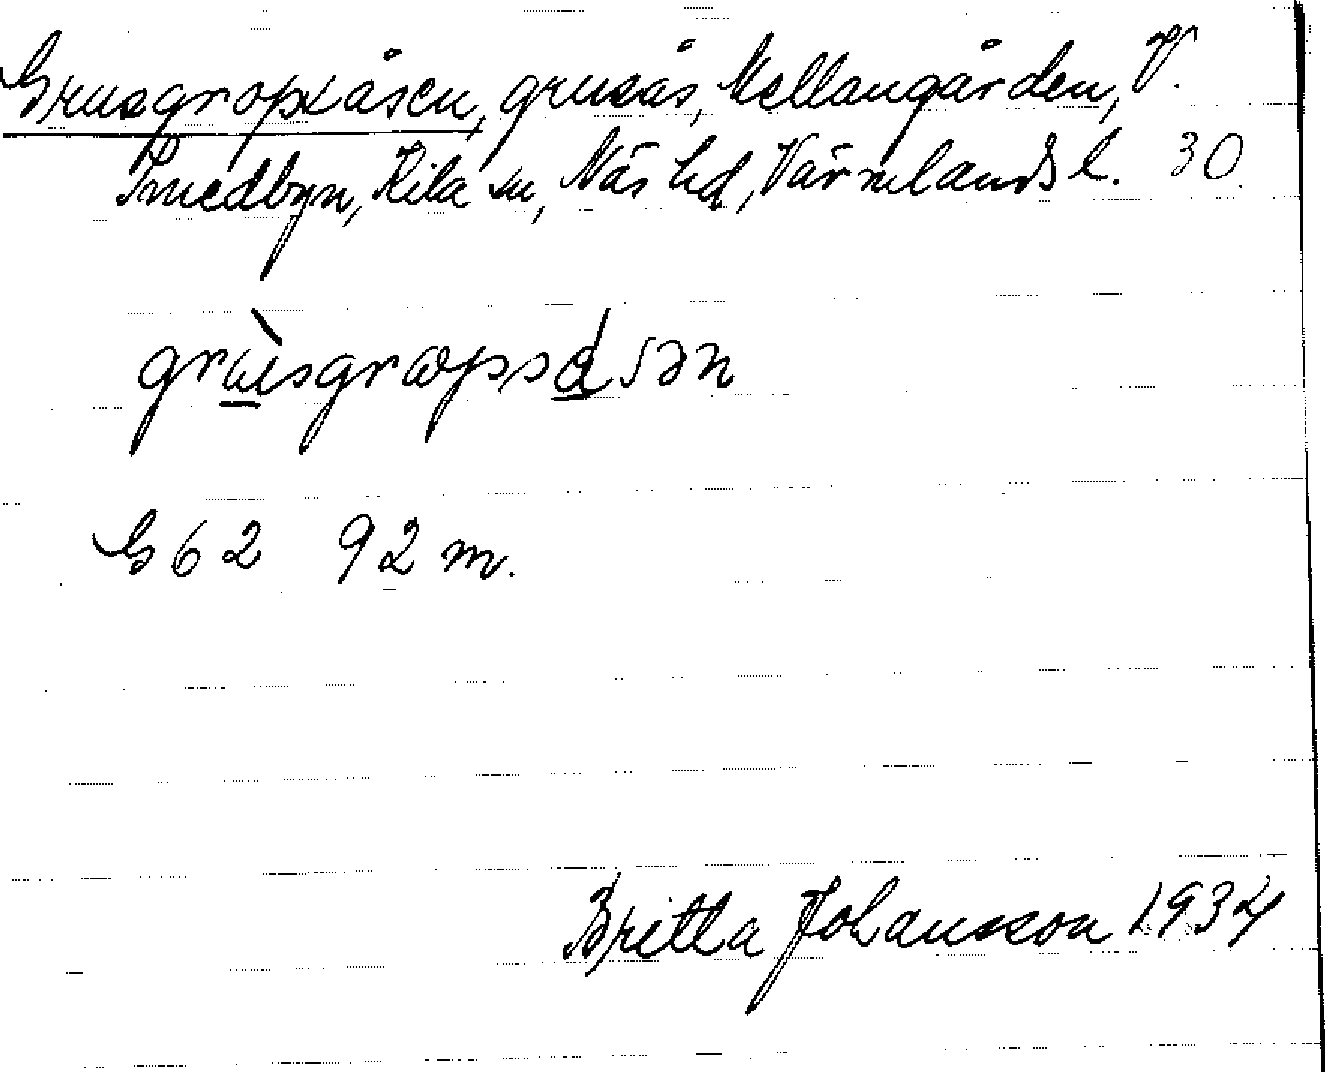 Grusgropsåsen, grusås, Mellangården, V.
Smedbyn, Kila sn, Näs hd, Värmlands l. 30.
G 62 92 m.
Britta Johansson 1934